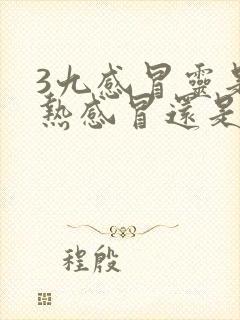 3九感冒靈是
熱感冒還是
程殷